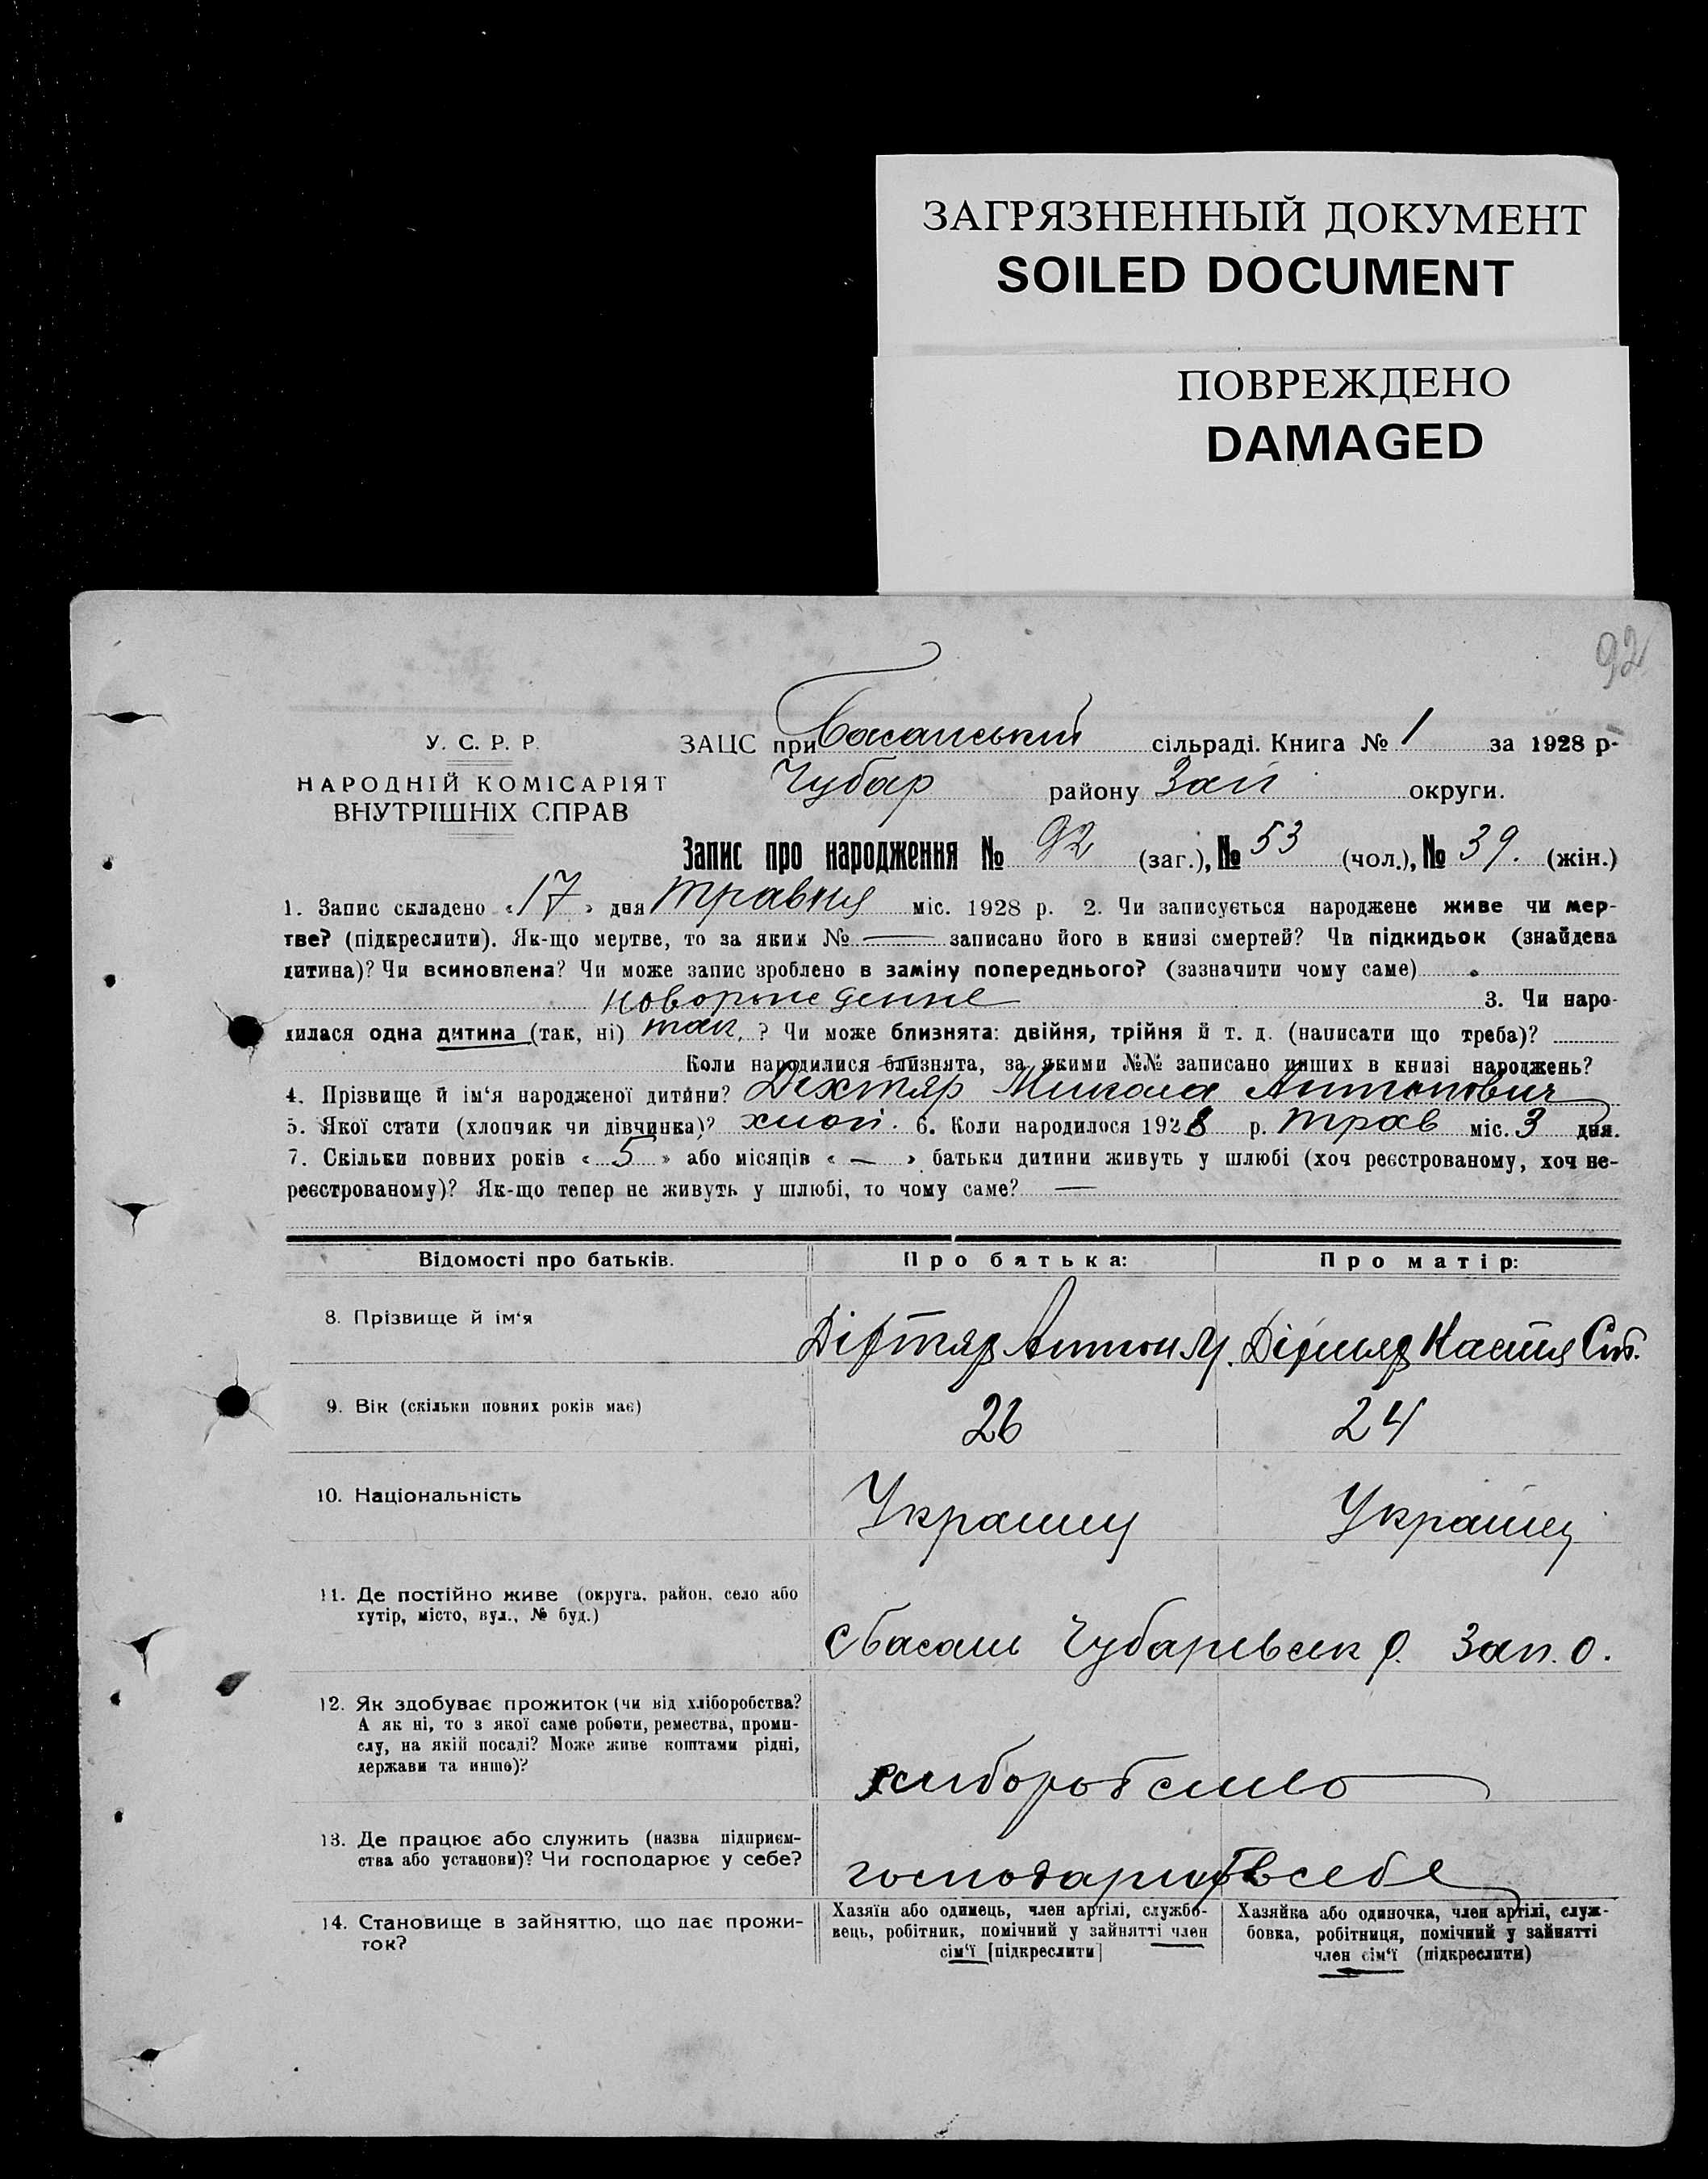 ЗАГРЯЗНЕННЫЙ ДОКУМЕНТ
SOILED DOCUMENT
ПОВРЕЖДЕНО
DAMAGED
92
У. С. Р. Р.
НАРОДНІЙ КОМІСАРІЯТ
ВНУТРІШНІХ СПРАВ
ЗАЦС при Басанський сільраді. Книга № 1 за 1928 р.
Чубар району Зап округи.
Запис про народження № 92 (заг.), № 53 (чол.), № 39. (жін.)
1. Запис складено « 17 » дня травня міс. 1928 р. 2. Чи записується народжене живе чи мер-
тве? (підкреслити). Як-що мертве, то за яким № — записано його в книзі смертей? Чи підкидьок (знайдена
дитина)? Чи всиновлена? Чи може запис зроблено в заміну попереднього? (зазначити чому саме)
новорожденне 3. Чи наро-
дилася одна дитина (так, ні) так, ? Чи може близнята: двійня, трійня й т. д. (написати що треба)?
Коли народилися близнята, за якими №№ записано инших в книзі народжень?
4. Прізвище й ім'я народженої дитини? Діхтяр Микола Антонович
5. Якої стати (хлопчик чи дівчинка)? хлоп. 6. Коли народилося 1928 р. трав міс. 3 дня.
7. Скільки повних років « 5 » або місяців « — » батьки дитини живуть у шлюбі (хоч реєстрованому, хоч не-
реєстрованому)? Як-що тепер не живуть у шлюбі, то чому саме? —
Відомості про батьків. Про батька: Про матір:
8. Прізвище й ім'я Діхтяр Антон М. Діхтяр Настя
9. Вік (скільки повних років має) 26 24
10. Національність Украинц Украинц
11. Де постійно живе (округа, район, село або
хутір, місто, вул., № буд.)
с басань Чубаревськ р. Зап. о.
12. Як здобуває прожиток (чи від хліборобства?
А як ні, то з якої саме роботи, ремества, проми-
слу, на якій посаді? Може живе коштами рідні,
держави та инше)?
хліборобство
13. Де працює або служить (назва підприєм-
ства або установи)? Чи господарює у себе?
господарює в себе
14. Становище в зайняттю, що дає прожи-
ток?
Хазяїн або одинець, член артілі, службо-
вець, робітник, помічний у зайнятті член
сім'ї [підкреслити]
Хазяйка або одиночка, член артілі, служ-
бовка, робітниця, помічний у зайнятті
член сім'ї (підкреслити)